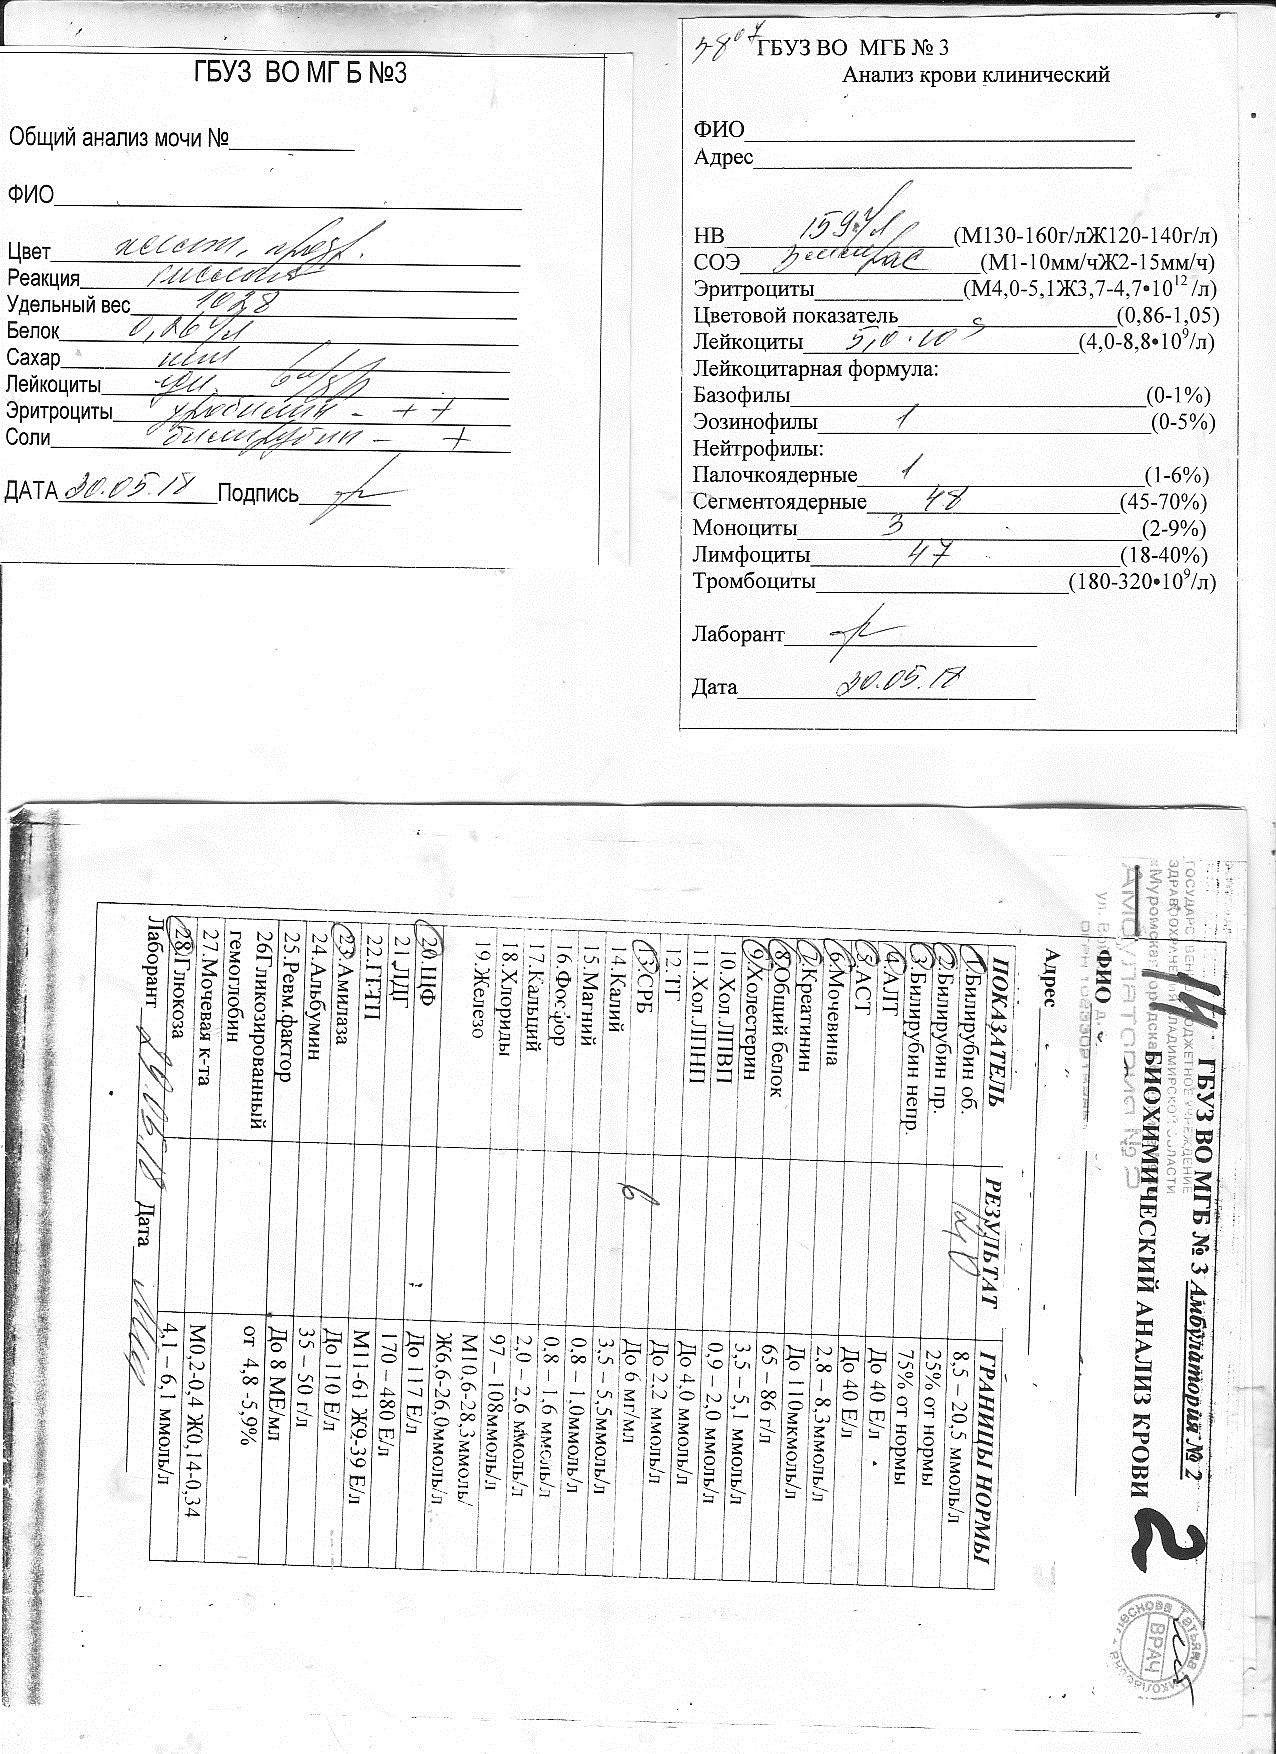 ГБУЗ ВО МГ Б №3
Общий анализ мочи №
ФИО
Цвет
Реакция
Удельный вес 1028
Белок 0,26 г/л
Сахар
Лейкоциты
Эритроциты уробилин - + +
Соли билирубин - +
ДАТА 30.05.18 Подпись
ГБУЗ ВО МГБ № 3
Анализ крови клинический
ФИО
Адрес
НВ 159 г/л (М130-160г/лЖ120-140г/л)
СОЭ (М1-10мм/чЖ2-15мм/ч)
Эритроциты (М4,0-5,1Ж3,7-4,7•10¹²/л)
Цветовой показатель (0,86-1,05)
Лейкоциты 5,0·10⁹ (4,0-8,8•10⁹/л)
Лейкоцитарная формула:
Базофилы (0-1%)
Эозинофилы 1 (0-5%)
Нейтрофилы:
Палочкоядерные 1 (1-6%)
Сегментоядерные 48 (45-70%)
Моноциты 3 (2-9%)
Лимфоциты 47 (18-40%)
Тромбоциты (180-320•10⁹/л)
Лаборант
Дата 30.05.18
ГБУЗ ВО МГБ № 3 Амбулатория № 2
БИОХИМИЧЕСКИЙ АНАЛИЗ КРОВИ 2
ФИО
Адрес
ПОКАЗАТЕЛЬ РЕЗУЛЬТАТ ГРАНИЦЫ НОРМЫ
1.Билирубин об. 8,5 – 20,5 ммоль/л
2.Билирубин пр. 25% от нормы
3.Билирубин непр. 75% от нормы
4.АЛТ До 40 Е/л
5.АСТ До 40 Е/л
6.Мочевина 2,8 – 8,3ммоль/л
7.Креатинин До 110мкмоль/л
8.Общий белок 65 – 86 г/л
9.Холестерин 3,5 – 5,1 ммоль/л
10.Хол.ЛПВП 0,9 – 2,0 ммоль/л
11.Хол.ЛПНП До 4,0 ммоль/л
12.ТГ До 2,2 ммоль/л
13.СРБ 6 До 6 мг/мл
14.Калий 3,5 – 5,5ммоль/л
15.Магний 0,8 – 1,0ммоль/л
16.Фосфор 0,8 – 1,6 ммоль/л
17.Кальций 2,0 – 2,6 ммоль/л
18.Хлориды 97 – 108ммоль/л
19.Железо М10,6-28,3ммоль/
Ж6,6-26,0ммоль/л
20.ЩФ До 117 Е/л
21.ЛДГ 170 – 480 Е/л
22.ГГТП М11-61 Ж9-39 Е/л
23.Амилаза До 110 Е/л
24.Альбумин 35 – 50 г/л
25.Ревм.фактор До 8 МЕ/мл
26Гликозированный
гемоглобин от 4,8 -5,9%
27.Мочевая к-та М0,2-0,4 Ж0,14-0,34
28.Глюкоза 4,1 – 6,1 ммоль/л
Лаборант Дата
ВРАЧ